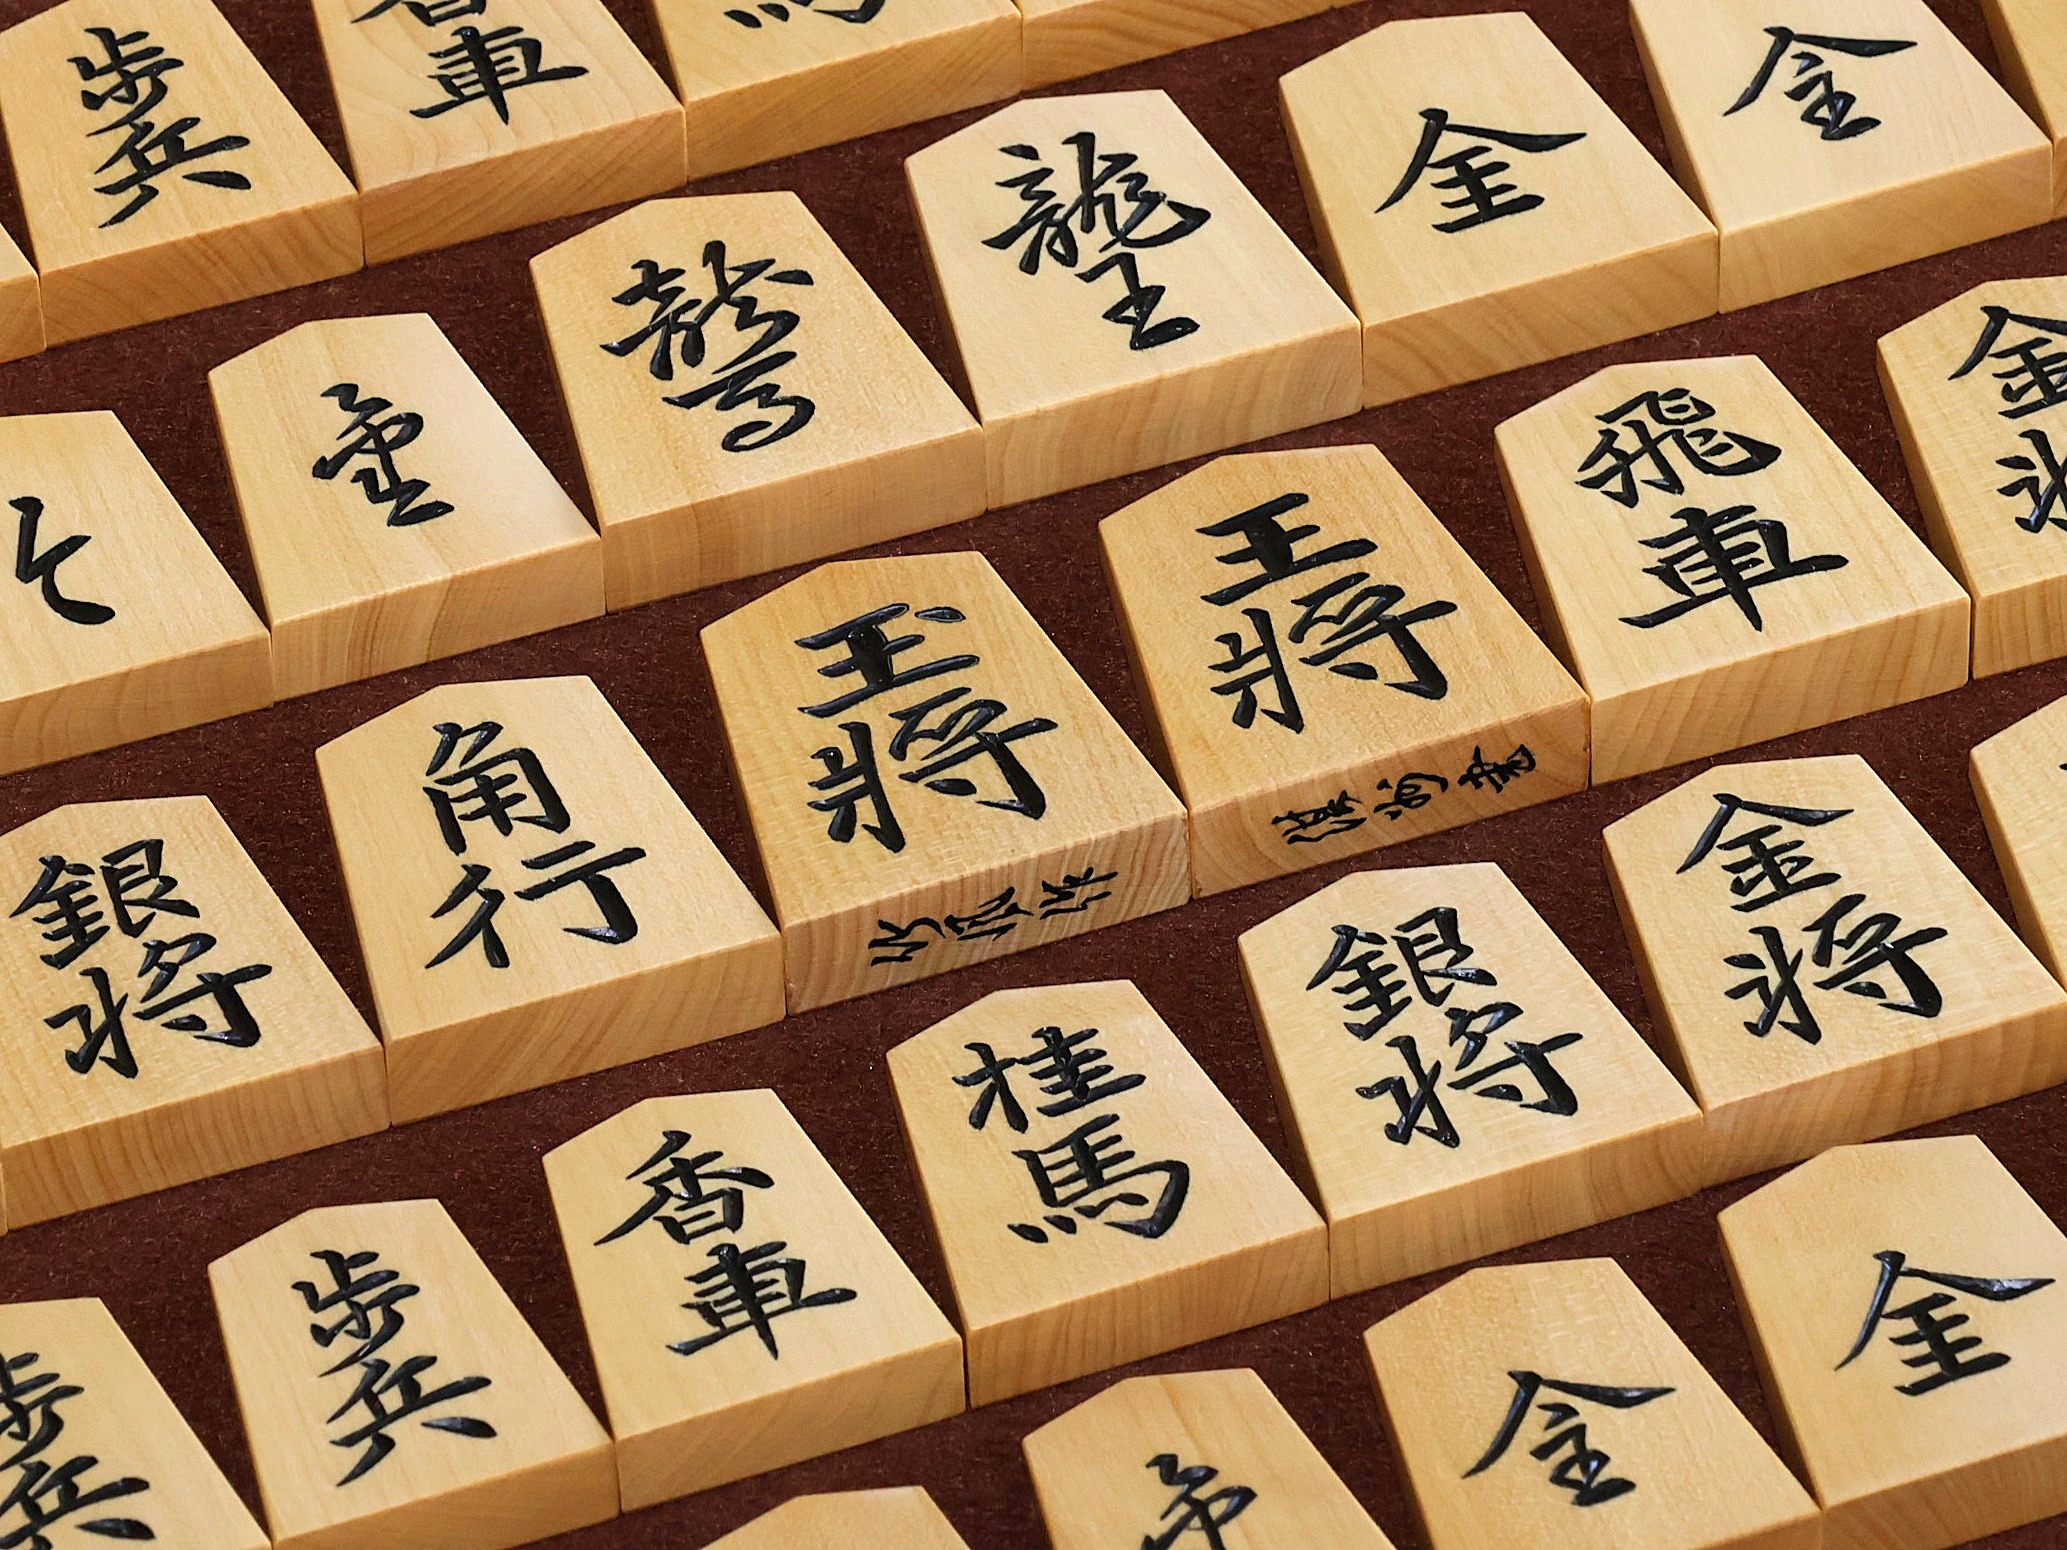 歩兵
香車
龍王
金
全
と
龍馬
飛車
王将
玉将
角行
銀将
金将
銀将
桂馬
香車
歩兵
歩兵
金
全